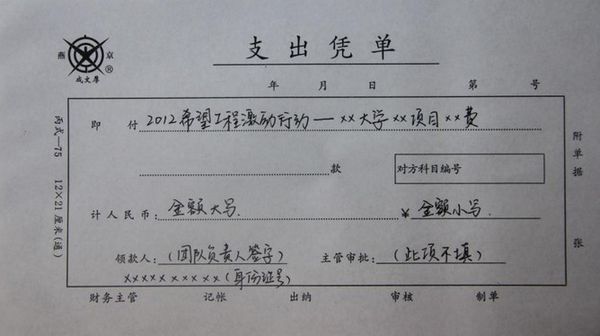 燕 京
®
成文厚
支出凭单
年 月 日 第 号
即 付 2012希望工程激励行动—××大学××项目××费
款 对方科目编号
计人民币：金额大写 ¥ 金额小写
领款人：（团队负责人签字） 主管审批：（此项不填）
××××××××××（身份证号）
财务主管 记帐 出纳 审核 制单
丙式—75 12×21厘米（通）
附单据 张